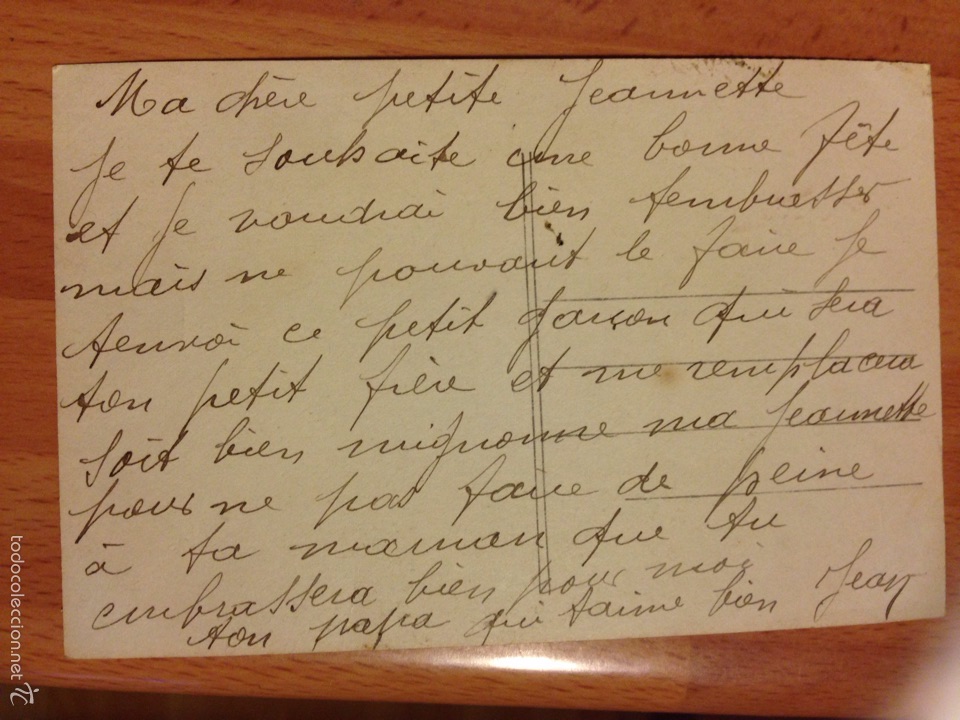 Ma chère petite Jeannette
Je te souhaite une bonne fête
et je voudrai bien tembrasser
mais ne pouvant le faire je
tenvoi ce petit garçon qui sera
ton petit frère et me remplacera
soit bien mignonne ma Jeannette
pour ne pas faire de peine
à ta maman que tu
embrassera bien pour moi
ton papa qui taime bien Jean
todocoleccion.net